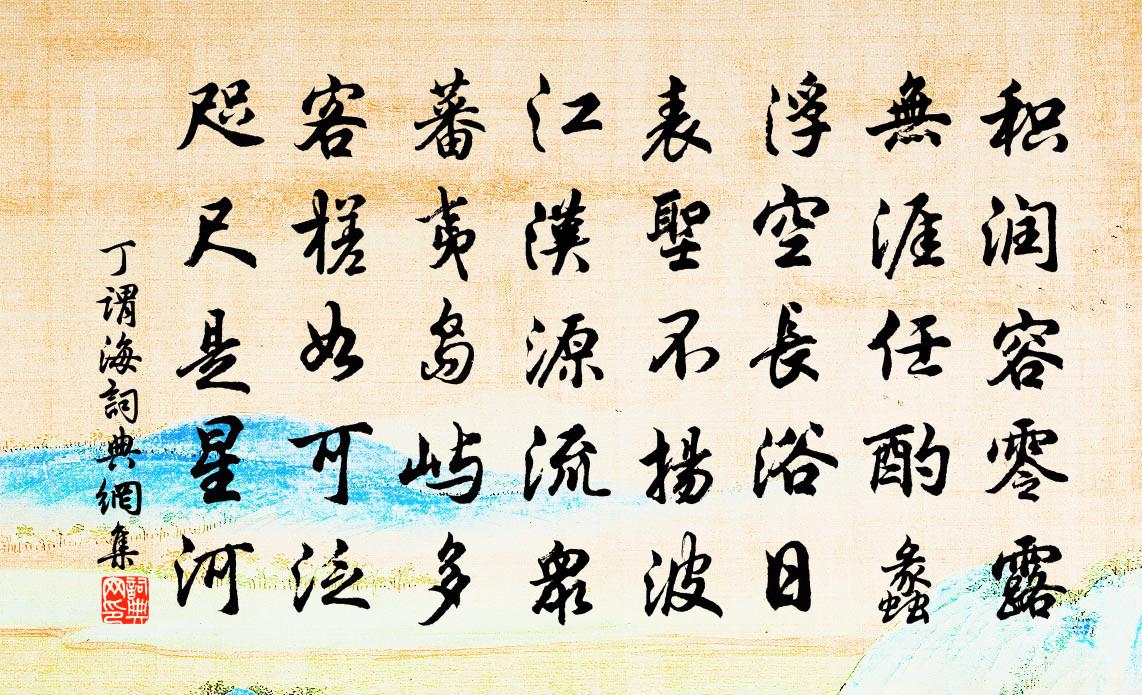 积润容零露
無涯任酌蠡
浮空長浴日
表聖不揚波
江漢源流衆
蕃夷島嶼多
客槎如可泛
咫尺是星河
丁謂海詞典網集
詞典网印